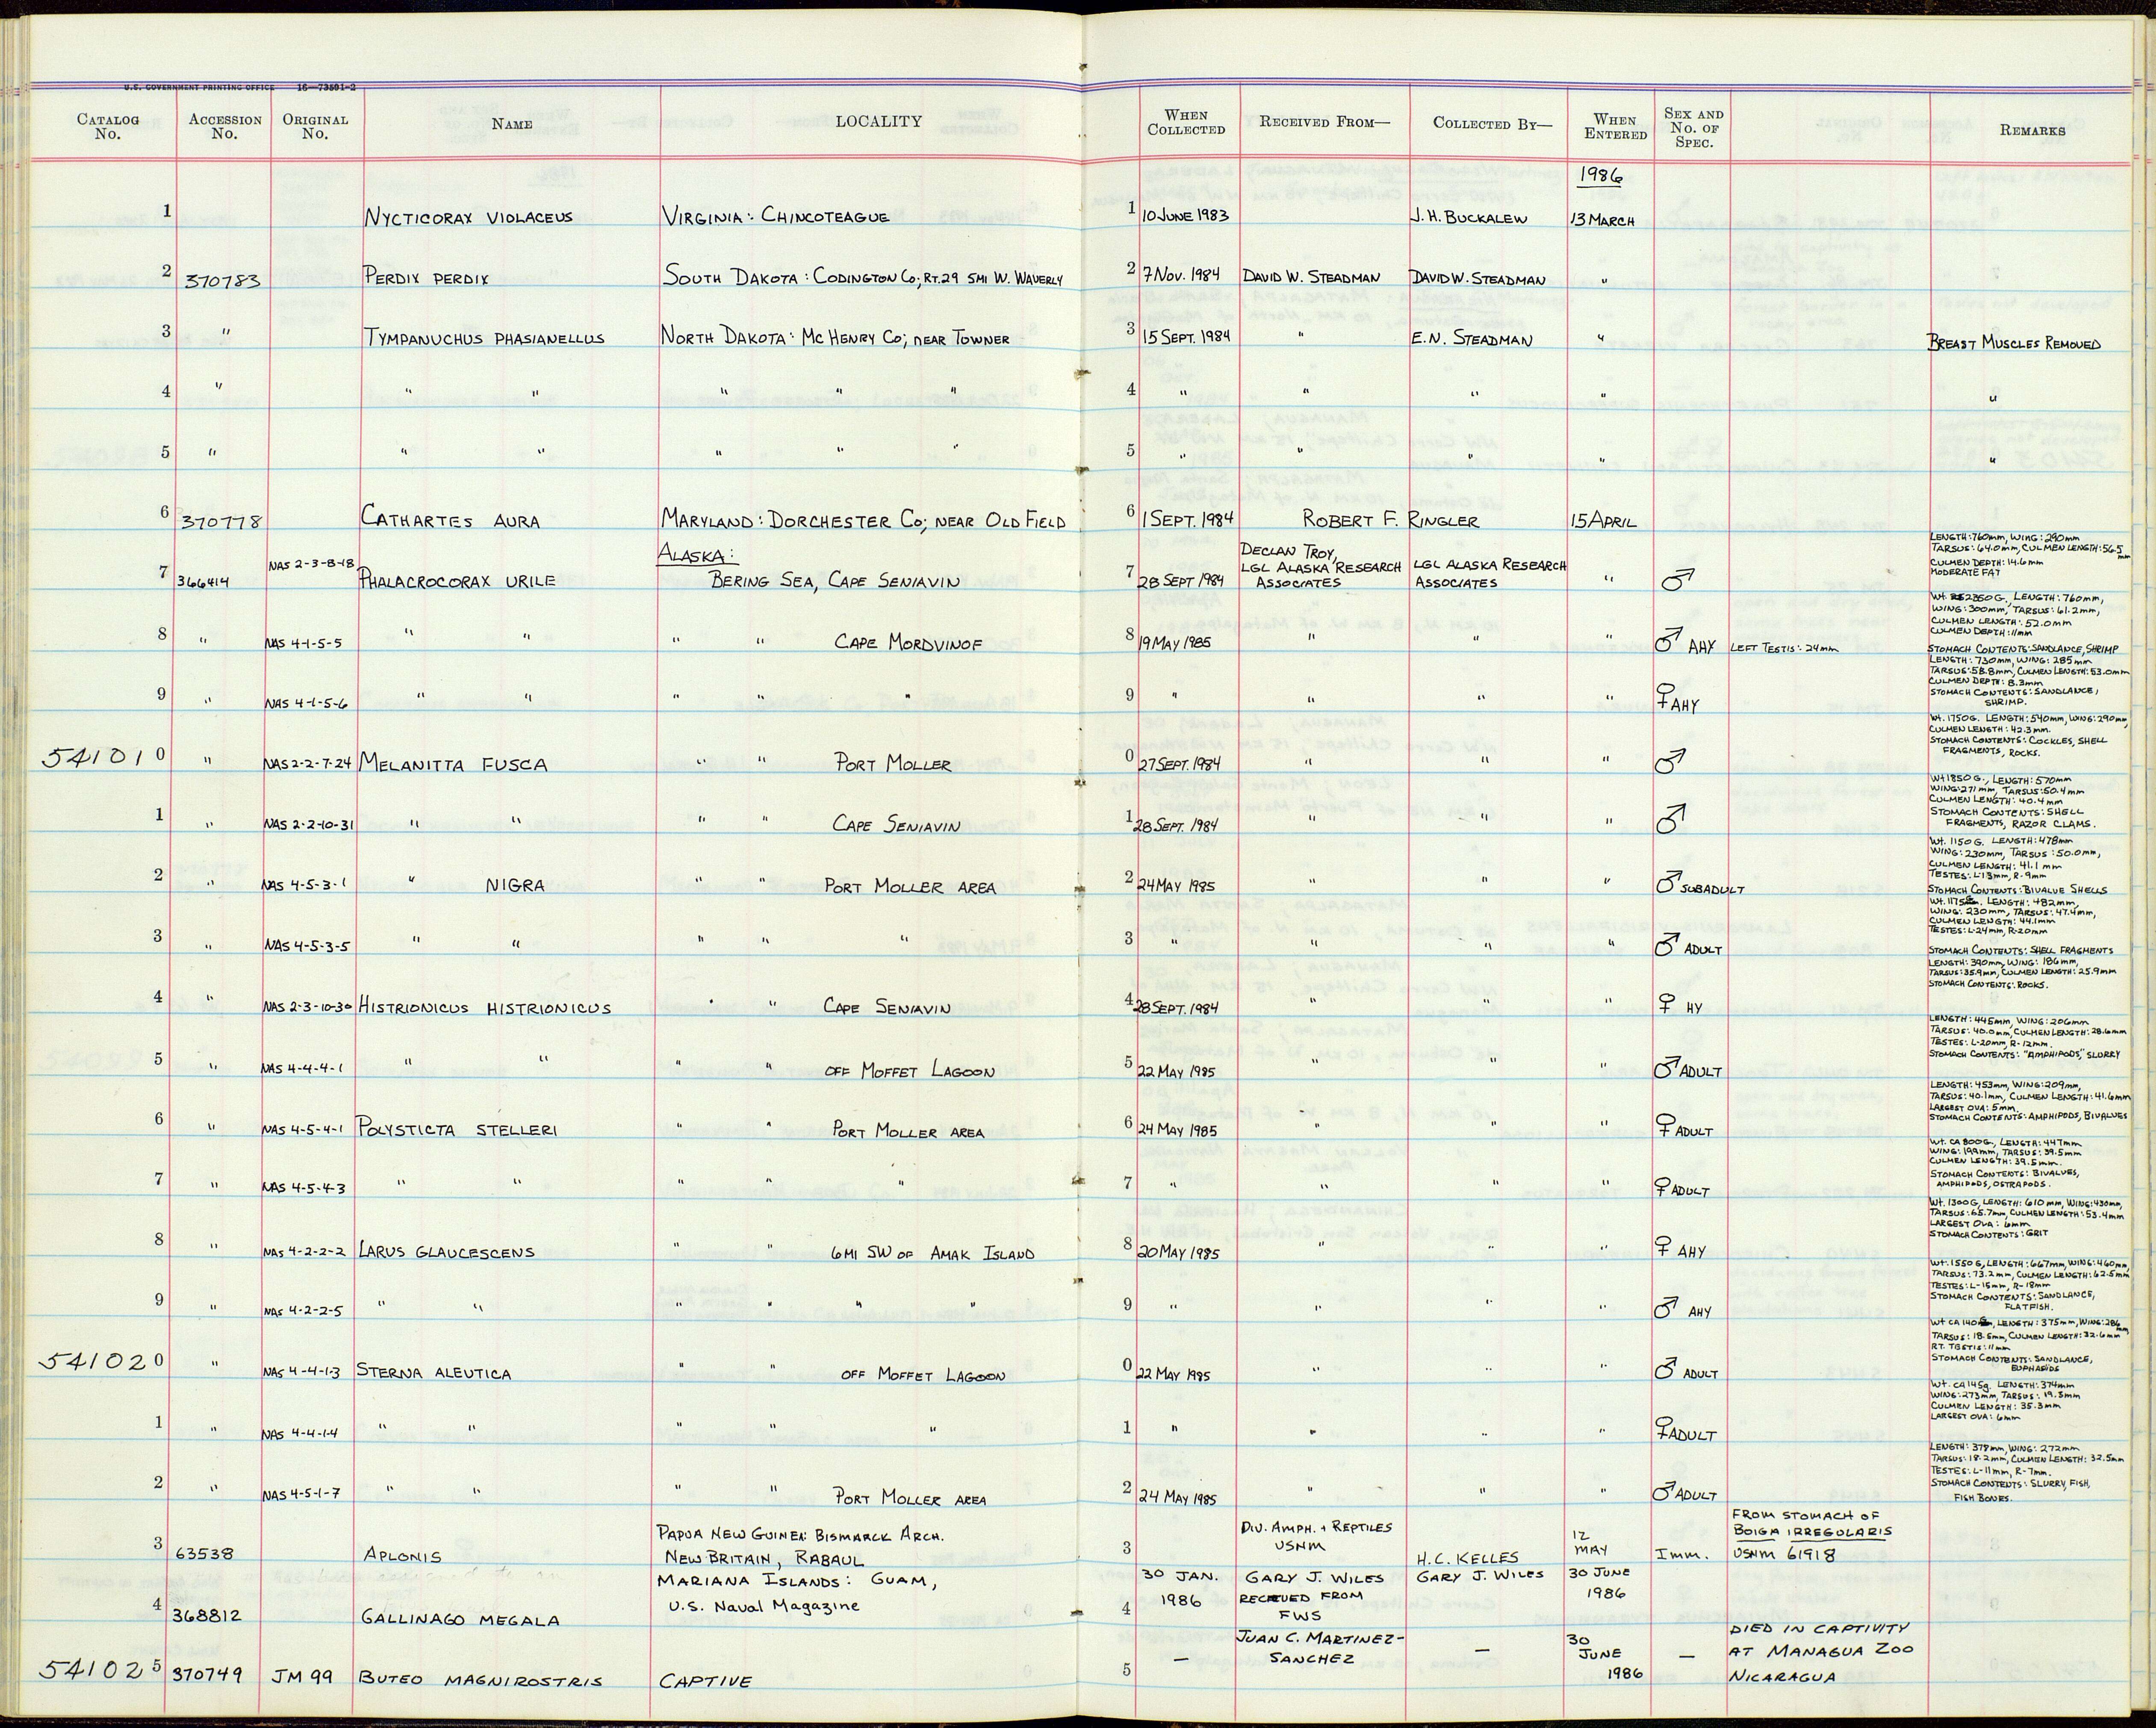 U.S. GOVERNMENT PRINTING OFFICE 16—73591-2
CATALOG No. ACCESSION No. ORIGINAL No. NAME LOCALITY WHEN COLLECTED RECEIVED FROM— COLLECTED BY— WHEN ENTERED SEX AND No. OF SPEC. REMARKS
1986
1 NYCTICORAX VIOLACEUS VIRGINIA: CHINCOTEAGUE 1 10 JUNE 1983 J.H. BUCKALEW 13 MARCH
2 370783 PERDIX PERDIX SOUTH DAKOTA: CODINGTON CO; RT. 29 5MI W. WAVERLY 2 7 NOV. 1984 DAVID W. STEADMAN DAVID W. STEADMAN "
3 " TYMPANUCHUS PHASIANELLUS NORTH DAKOTA: MCHENRY CO; NEAR TOWNER 3 15 SEPT. 1984 " E.N. STEADMAN " BREAST MUSCLES REMOVED
4 " " " " " " 4 " " " " "
5 " " " " " " 5 " " " " "
6 370778 CATHARTES AURA MARYLAND: DORCHESTER CO; NEAR OLD FIELD 6 1 SEPT. 1984 ROBERT F. RINGLER 15 APRIL
7 366414 NAS 2-3-8-18 PHALACROCORAX URILE ALASKA:
BERING SEA, CAPE SENIAVIN 7 28 SEPT 1984 DECLAN TROY,
LGL ALASKA RESEARCH
ASSOCIATES LGL ALASKA RESEARCH
ASSOCIATES " ♂ LENGTH: 760mm, WING: 290mm
TARSUS: 64.0mm, CULMEN LENGTH: 56.5mm
CULMEN DEPTH: 14.6mm
MODERATE FAT
8 " NAS 4-1-5-5 " " " " CAPE MORDVINOF 8 19 MAY 1985 " " " ♂ AHY LEFT TESTIS: 24mm WT. 2350 G, LENGTH: 760mm,
WING: 300mm, TARSUS: 61.2mm,
CULMEN LENGTH: 52.0mm
CULMEN DEPTH: 11mm
STOMACH CONTENTS: SANDLANCE, SHRIMP
9 " NAS 4-1-5-6 " " " " " 9 " " " " ♀ AHY LENGTH: 730mm, WING: 285mm
TARSUS: 58.8mm, CULMEN LENGTH: 53.0mm
CULMEN DEPTH: 8.3mm
STOMACH CONTENTS: SANDLANCE,
SHRIMP.
541010 " NAS 2-2-7-24 MELANITTA FUSCA " " PORT MOLLER 0 27 SEPT. 1984 " " " ♂ WT. 1750G. LENGTH: 540mm, WING: 290mm,
CULMEN LENGTH: 42.3mm.
STOMACH CONTENTS: COCKLES, SHELL
FRAGMENTS, ROCKS.
1 " NAS 2-2-10-31 " " " " CAPE SENIAVIN 1 28 SEPT. 1984 " " " ♂ WT 1850 G., LENGTH: 570mm
WING: 271 mm, TARSUS: 50.4mm
CULMEN LENGTH: 40.4mm
STOMACH CONTENTS: SHELL
FRAGMENTS, RAZOR CLAMS.
2 " NAS 4-5-3-1 " NIGRA " " PORT MOLLER AREA 2 24 MAY 1985 " " " ♂ SUBADULT WT. 1150 G. LENGTH: 478mm
WING: 230mm, TARSUS: 50.0mm,
CULMEN LENGTH: 41.1 mm
TESTES: L-13mm, R-9mm
STOMACH CONTENTS: BIVALUE SHELLS
3 " NAS 4-5-3-5 " " " " " 3 " " " " ♂ ADULT WT. 1175 LENGTH: 482mm,
WING: 230mm, TARSUS: 47.4mm,
CULMEN LENGTH: 44.1mm
TESTES: L-24mm, R-20mm
STOMACH CONTENTS: SHELL FRAGMENTS
4 " NAS 2-3-10-30 HISTRIONICUS HISTRIONICUS " " CAPE SENIAVIN 4 28 SEPT. 1984 " " " ♀ HY LENGTH: 390mm, WING: 186mm,
TARSUS: 35.9mm, CULMEN LENGTH: 25.9mm
STOMACH CONTENTS: ROCKS.
5 " NAS 4-4-4-1 " " " " OFF MOFFET LAGOON 5 22 MAY 1985 " " " ♂ ADULT LENGTH: 445mm, WING: 206mm
TARSUS: 40.0mm, CULMEN LENGTH: 28.6mm
TESTES: L-20mm, R-12mm.
STOMACH CONTENTS: "AMPHIPODS," SLURRY
6 " NAS 4-5-4-1 POLYSTICTA STELLERI " " PORT MOLLER AREA 6 24 MAY 1985 " " " ♀ ADULT LENGTH: 453mm, WING: 209mm,
TARSUS: 40.1mm, CULMEN LENGTH: 41.6mm
LARGEST OVA: 5mm.
STOMACH CONTENTS: AMPHIPODS, BIVALVES
7 " NAS 4-5-4-3 " " " " " 7 " " " " ♀ ADULT WT. CA 800G, LENGTH: 447mm
WING: 199mm, TARSUS: 39.5mm
CULMEN LENGTH: 39.5mm.
STOMACH CONTENTS: BIVALVES,
AMPHIPODS, OSTRAPODS.
8 " NAS 4-2-2-2 LARUS GLAUCESCENS " " 6MI SW OF AMAK ISLAND 8 20 MAY 1985 " " " ♀ AHY WT. 1300 G, LENGTH: 610 mm, WING: 430mm,
TARSUS: 65.7mm, CULMEN LENGTH: 53.4mm
LARGEST OVA: 6mm
STOMACH CONTENTS: GRIT
9 " NAS 4-2-2-5 " " " " " " 9 " " " " ♂ AHY WT. 1550 G, LENGTH: 667mm, WING: 460mm,
TARSUS: 73.2mm, CULMEN LENGTH: 62.5mm
TESTES: L-15mm, R-18mm
STOMACH CONTENTS: SANDLANCE,
FLATFISH.
541020 " NAS 4-4-1-3 STERNA ALEUTICA " " OFF MOFFET LAGOON 0 22 MAY 1985 " " " ♂ ADULT WT CA 140 LENGTH: 375mm, WING: 286mm
TARSUS: 18.5mm, CULMEN LENGTH: 32.6mm
RT. TESTIS: 11mm
STOMACH CONTENTS: SANDLANCE,
EUPHASIDS
1 " NAS 4-4-1-4 " " " " " 1 " " " " ♀ ADULT WT. CA 145g. LENGTH: 374mm
WING: 273mm, TARSUS: 19.5mm
CULMEN LENGTH: 35.3mm
LARGEST OVA: 6mm
2 " NAS 4-5-1-7 " " " " PORT MOLLER AREA 2 24 MAY 1985 " " " ♂ ADULT LENGTH: 378mm, WING: 272mm
TARSUS: 18.2mm, CULMEN LENGTH: 32.5mm
TESTES: L-11mm, R-7mm.
STOMACH CONTENTS: SLURRY, FISH,
FISH BONES.
3 63538 APLONIS PAPUA NEW GUINEA: BISMARCK ARCH.
NEW BRITAIN, RABAUL 3 DIV. AMPH. + REPTILES
USNM H.C. KELLES 12
MAY Imm. FROM STOMACH OF
BOIGA IRREGULARIS
USNM 61918
4 368812 GALLINAGO MEGALA MARIANA ISLANDS: GUAM,
U.S. Naval Magazine 4 30 JAN.
1986 GARY J. WILES
RECEIVED FROM
FWS GARY J. WILES 30 JUNE
1986
541025 370749 JM 99 BUTEO MAGNIROSTRIS CAPTIVE 5 — JUAN C. MARTINEZ-
SANCHEZ — 30
JUNE
1986 — DIED IN CAPTIVITY
AT MANAGUA ZOO
NICARAGUA